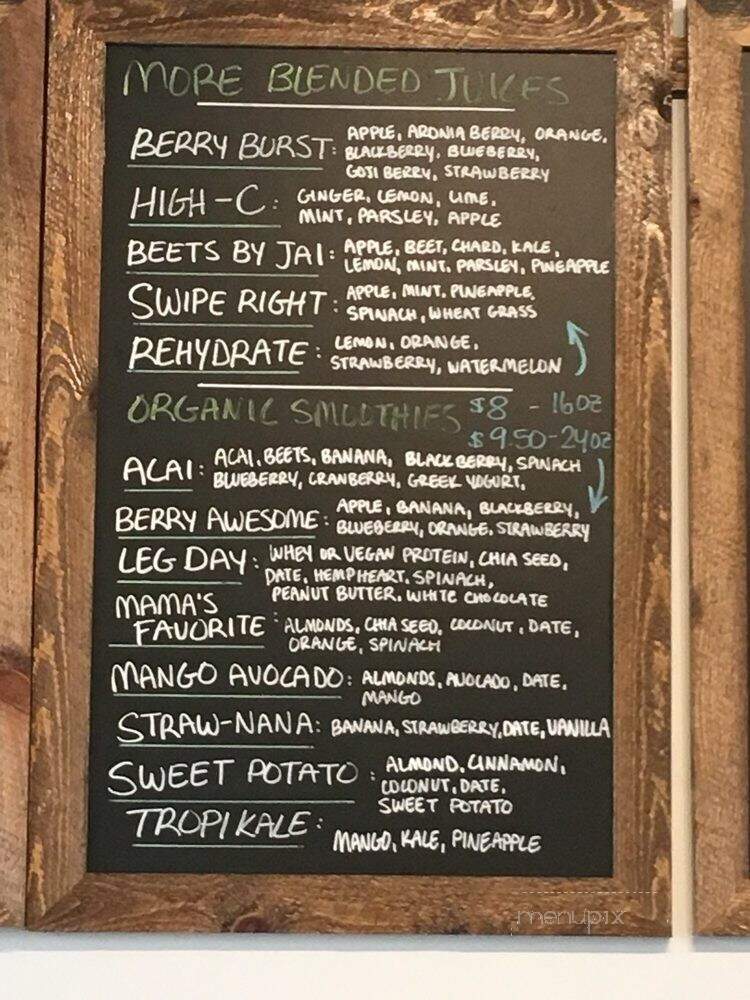 MORE BLENDED JUICES
BERRY BURST: APPLE, ARONIA BERRY, ORANGE,
BLACKBERRY, BLUEBERRY,
GOJI BERRY, STRAWBERRY
HIGH-C: GINGER, LEMON, LIME,
MINT, PARSLEY, APPLE
BEETS BY JAI: APPLE, BEET, CHARD, KALE,
LEMON, MINT, PARSLEY, PINEAPPLE
SWIPE RIGHT: APPLE, MINT, PINEAPPLE,
SPINACH, WHEAT GRASS
REHYDRATE: LEMON, ORANGE,
STRAWBERRY, WATERMELON
ORGANIC SMOOTHIES $8 - 16oz
$9.50-24oz
ACAI: ACAI, BEETS, BANANA, BLACKBERRY, SPINACH
BLUEBERRY, CRANBERRY, GREEK YOGURT,
BERRY AWESOME: APPLE, BANANA, BLACKBERRY,
BLUEBERRY, ORANGE, STRAWBERRY
LEG DAY: WHEY OR VEGAN PROTEIN, CHIA SEED,
DATE, HEMP HEART, SPINACH,
PEANUT BUTTER, WHITE CHOCOLATE
MAMA'S
FAVORITE: ALMONDS, CHIA SEED, COCONUT, DATE,
ORANGE, SPINACH
MANGO AVOCADO: ALMONDS, AVOCADO, DATE,
MANGO
STRAW-NANA: BANANA, STRAWBERRY, DATE, VANILLA
SWEET POTATO: ALMOND, CINNAMON,
COCONUT, DATE,
SWEET POTATO
TROPIKALE:
MANGO, KALE, PINEAPPLE
menupix